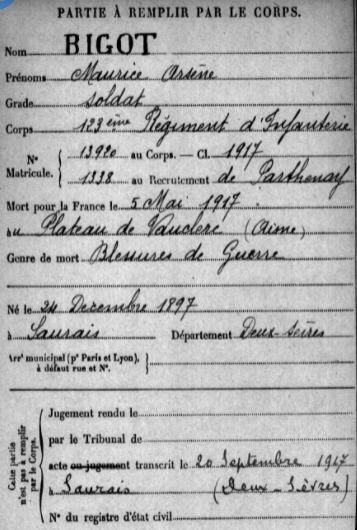 PARTIE À REMPLIR PAR LE CORPS.
Nom BIGOT
Prénoms Maurice Arsène
Grade soldat
Corps 123ème Régiment d'Infanterie
N° Matricule. { 13920 au Corps. — Cl. 1917
1338 au Recrutement de Parthenay
Mort pour la France le 5 Mai 1917
au Plateau de Vauclerc (Aisne)
Genre de mort Blessures de Guerre
Né le 24 Decembre 1897
à Saurais Département Deux-Sèvres
Arr' municipal (p' Paris et Lyon), à défaut rue et N°.
Cette partie n'est pas à remplir par le Corps.
Jugement rendu le
par le Tribunal de
acte ou jugement transcrit le 20 Septembre 1917
à Saurais (Deux-Sèvres)
N° du registre d'état civil